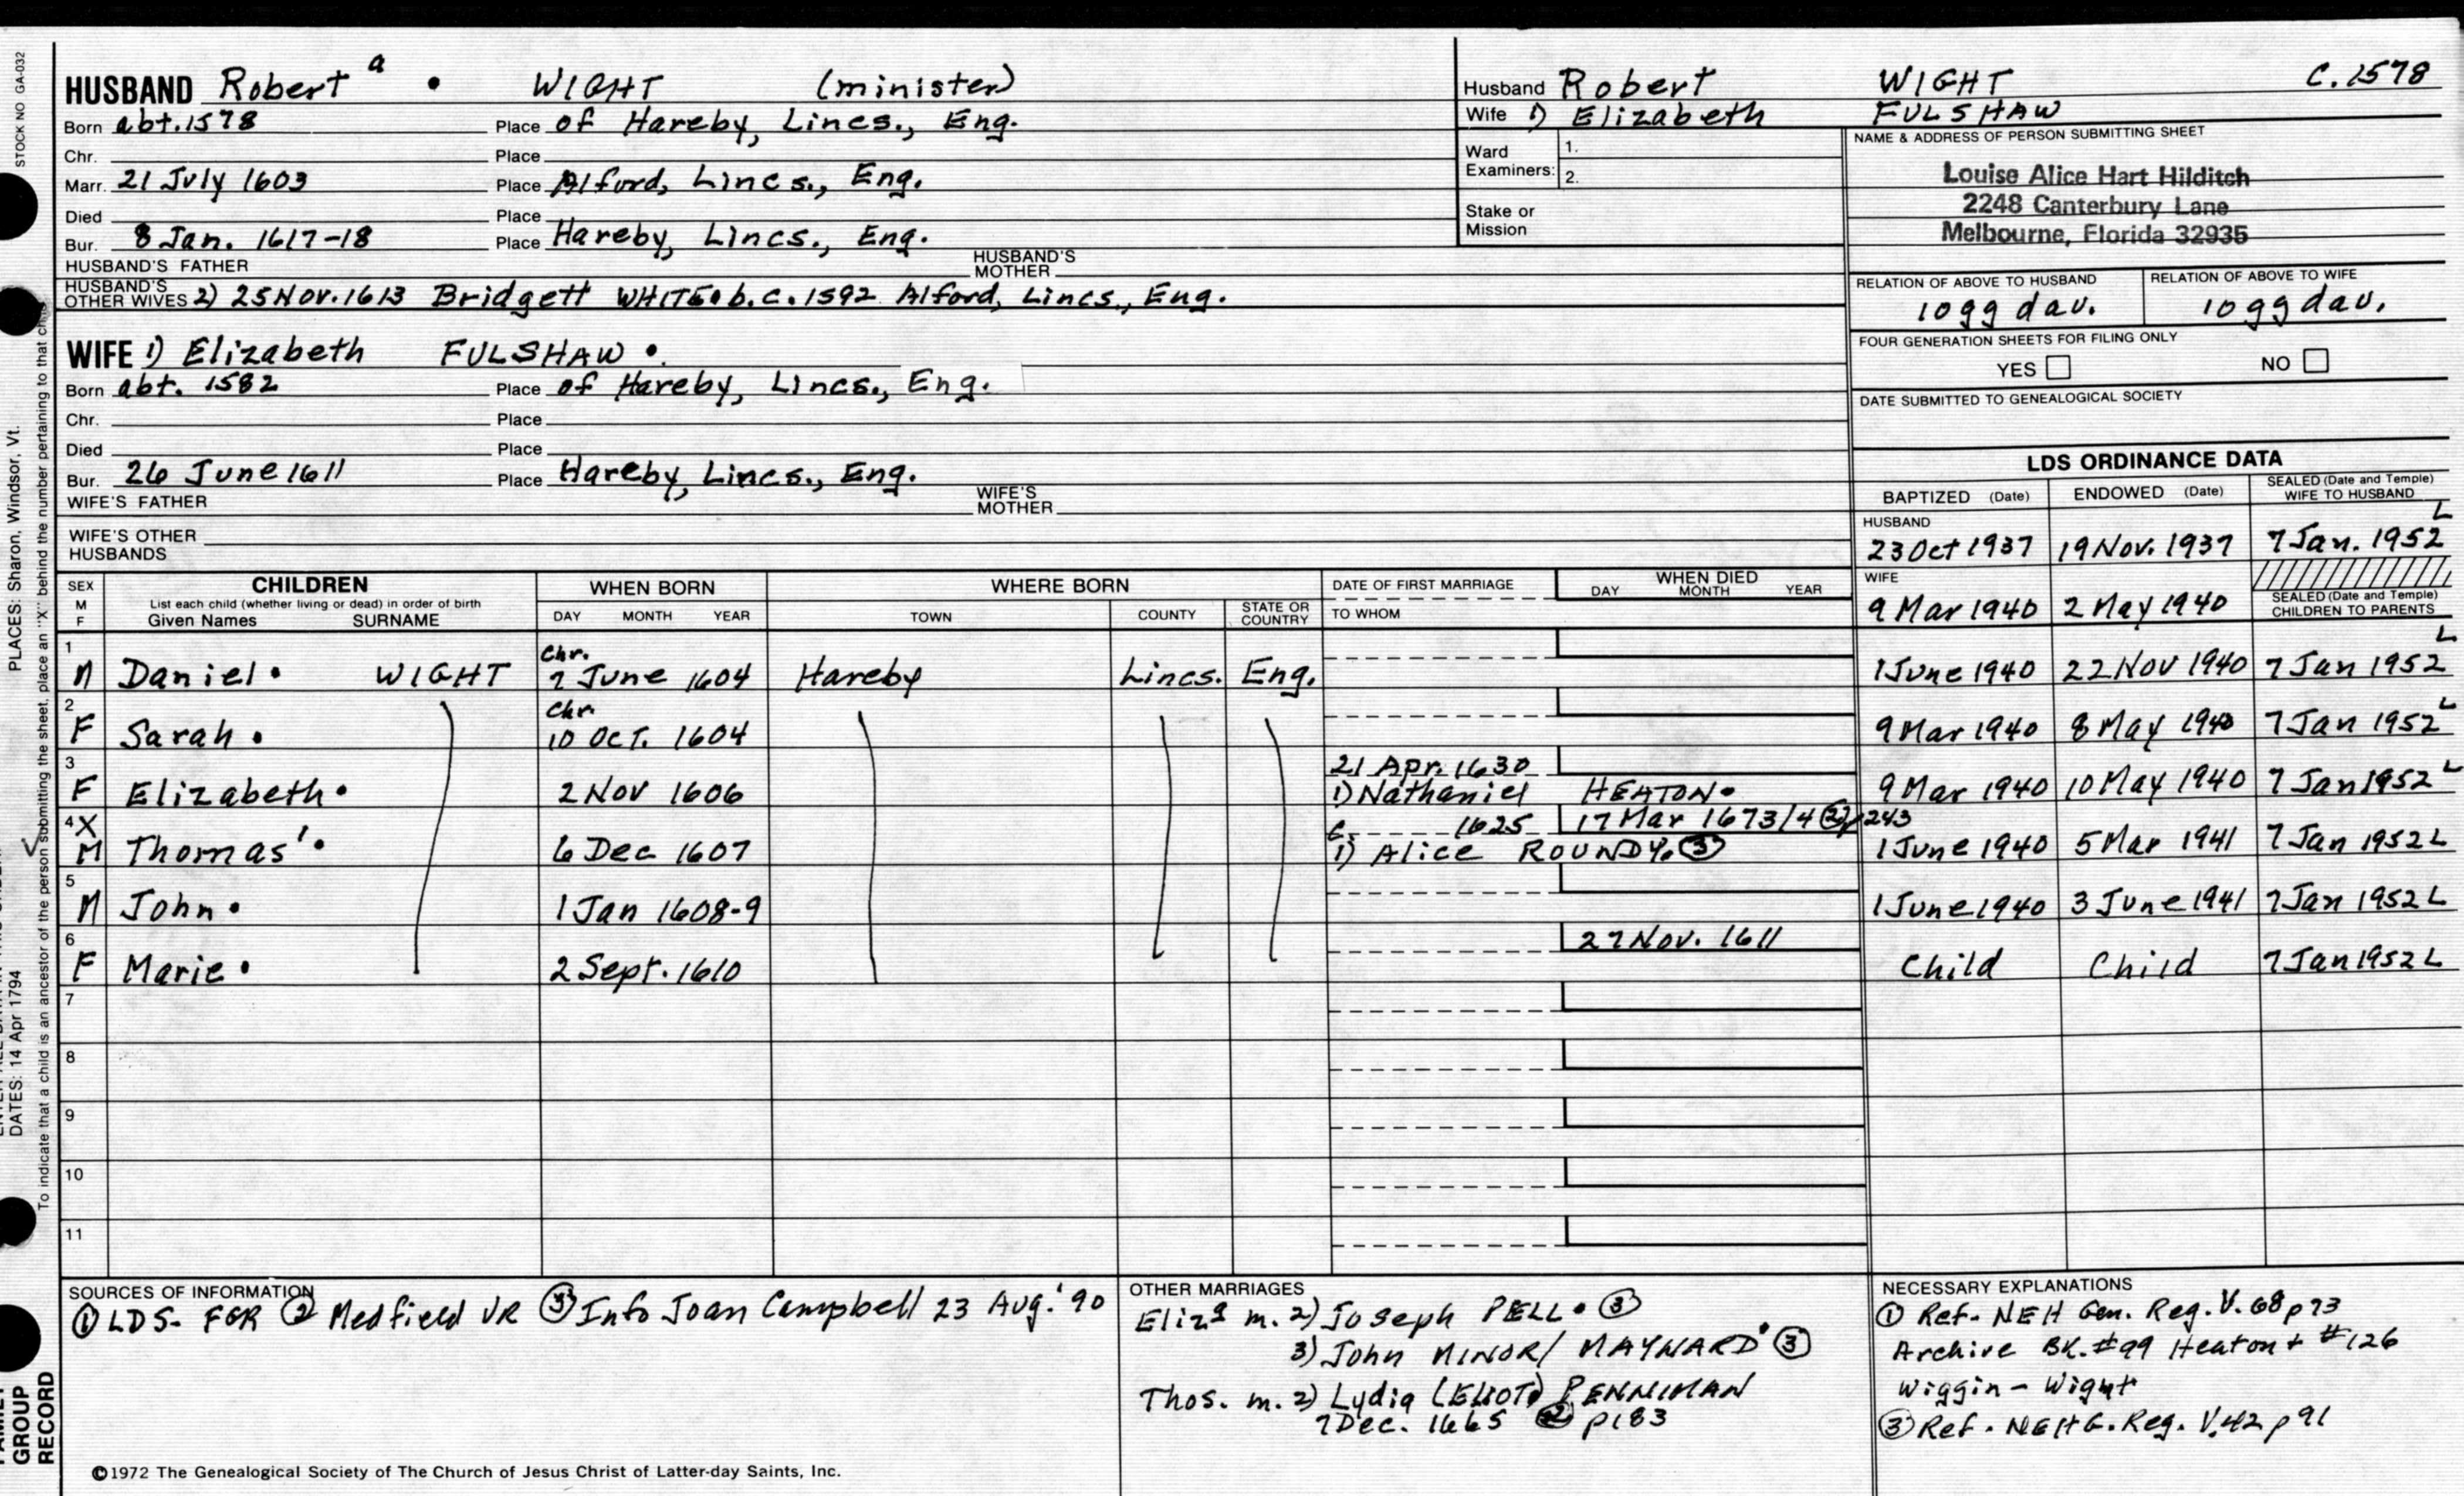 STOCK NO GA-032
HUSBAND Robert a WIGHT (minister)
Born abt. 1578 Place of Hareby, Lincs., Eng.
Chr. Place
Marr. 21 July 1603 Place Alford, Lincs., Eng.
Died Place
Bur. 8 Jan. 1617-18 Place Hareby, Lincs., Eng.
HUSBAND'S FATHER HUSBAND'S MOTHER
HUSBAND'S OTHER WIVES 2) 25 Nov. 1613 Bridgett WHITE b. c. 1592 Alford, Lincs., Eng.
WIFE 1) Elizabeth FULSHAW
Born abt. 1582 Place of Hareby, Lincs., Eng.
Chr. Place
Died Place
Bur. 26 June 1611 Place Hareby, Lincs., Eng.
WIFE'S FATHER WIFE'S MOTHER
WIFE'S OTHER HUSBANDS
Husband Robert WIGHT C. 1578
Wife 1) Elizabeth FULSHAW
Ward Examiners: 1.
2.
Stake or Mission
NAME & ADDRESS OF PERSON SUBMITTING SHEET
Louise Alice Hart Hilditch
2248 Canterbury Lane
Melbourne, Florida 32935
RELATION OF ABOVE TO HUSBAND RELATION OF ABOVE TO WIFE
10 gg dau. 10 gg dau.
FOUR GENERATION SHEETS FOR FILING ONLY
YES NO
DATE SUBMITTED TO GENEALOGICAL SOCIETY
LDS ORDINANCE DATA
BAPTIZED (Date) ENDOWED (Date) SEALED (Date and Temple) WIFE TO HUSBAND
HUSBAND
23 Oct 1937 19 Nov. 1937 7 Jan. 1952 L
WIFE
9 Mar 1940 2 May 1940 SEALED (Date and Temple) CHILDREN TO PARENTS
SEX M F CHILDREN List each child (whether living or dead) in order of birth Given Names SURNAME
WHEN BORN DAY MONTH YEAR
WHERE BORN TOWN COUNTY STATE OR COUNTRY
DATE OF FIRST MARRIAGE TO WHOM
WHEN DIED DAY MONTH YEAR
1 M Daniel WIGHT Chr. 7 June 1604 Hareby Lincs. Eng. 1 June 1940 22 Nov 1940 7 Jan 1952 L
2 F Sarah Chr. 10 Oct. 1604 9 Mar 1940 8 May 1940 7 Jan 1952 L
3 F Elizabeth 2 Nov 1606 21 Apr. 1630 1) Nathaniel HEATON 9 Mar 1940 10 May 1940 7 Jan 1952 L
4 X M Thomas 1 6 Dec 1607 c. 1625 17 Mar 1673/4 (2) p243 1) Alice ROUNDY (3) 1 June 1940 5 Mar 1941 7 Jan 1952 L
5 M John 1 Jan 1608-9 1 June 1940 3 June 1941 7 Jan 1952 L
6 F Marie 2 Sept. 1610 27 Nov. 1611 Child Child 7 Jan 1952 L
7
8
9
10
11
SOURCES OF INFORMATION
① LDS- FGR ② Medfield VR ③ Info Joan Campbell 23 Aug. '90
OTHER MARRIAGES
Eliza m. 2) Joseph PELL ③
3) John MINOR/ MAYNARD ③
Thos. m. 2) Lydia (ELIOT) PENNIMAN
7 Dec. 1665 ② p183
NECESSARY EXPLANATIONS
① Ref- NEH Gen. Reg. V. 68 p 73
Archive BK. #99 Heaton + #126
Wiggin - Wight
③ Ref. NEHG. Reg. V.42 p 91
©1972 The Genealogical Society of The Church of Jesus Christ of Latter-day Saints, Inc.
PLACES: Sharon, Windsor, Vt.
DATES: 14 Apr 1794
To indicate that a child is an ancestor of the person submitting the sheet, place an "X" behind the number pertaining to that
GROUP
RECORD